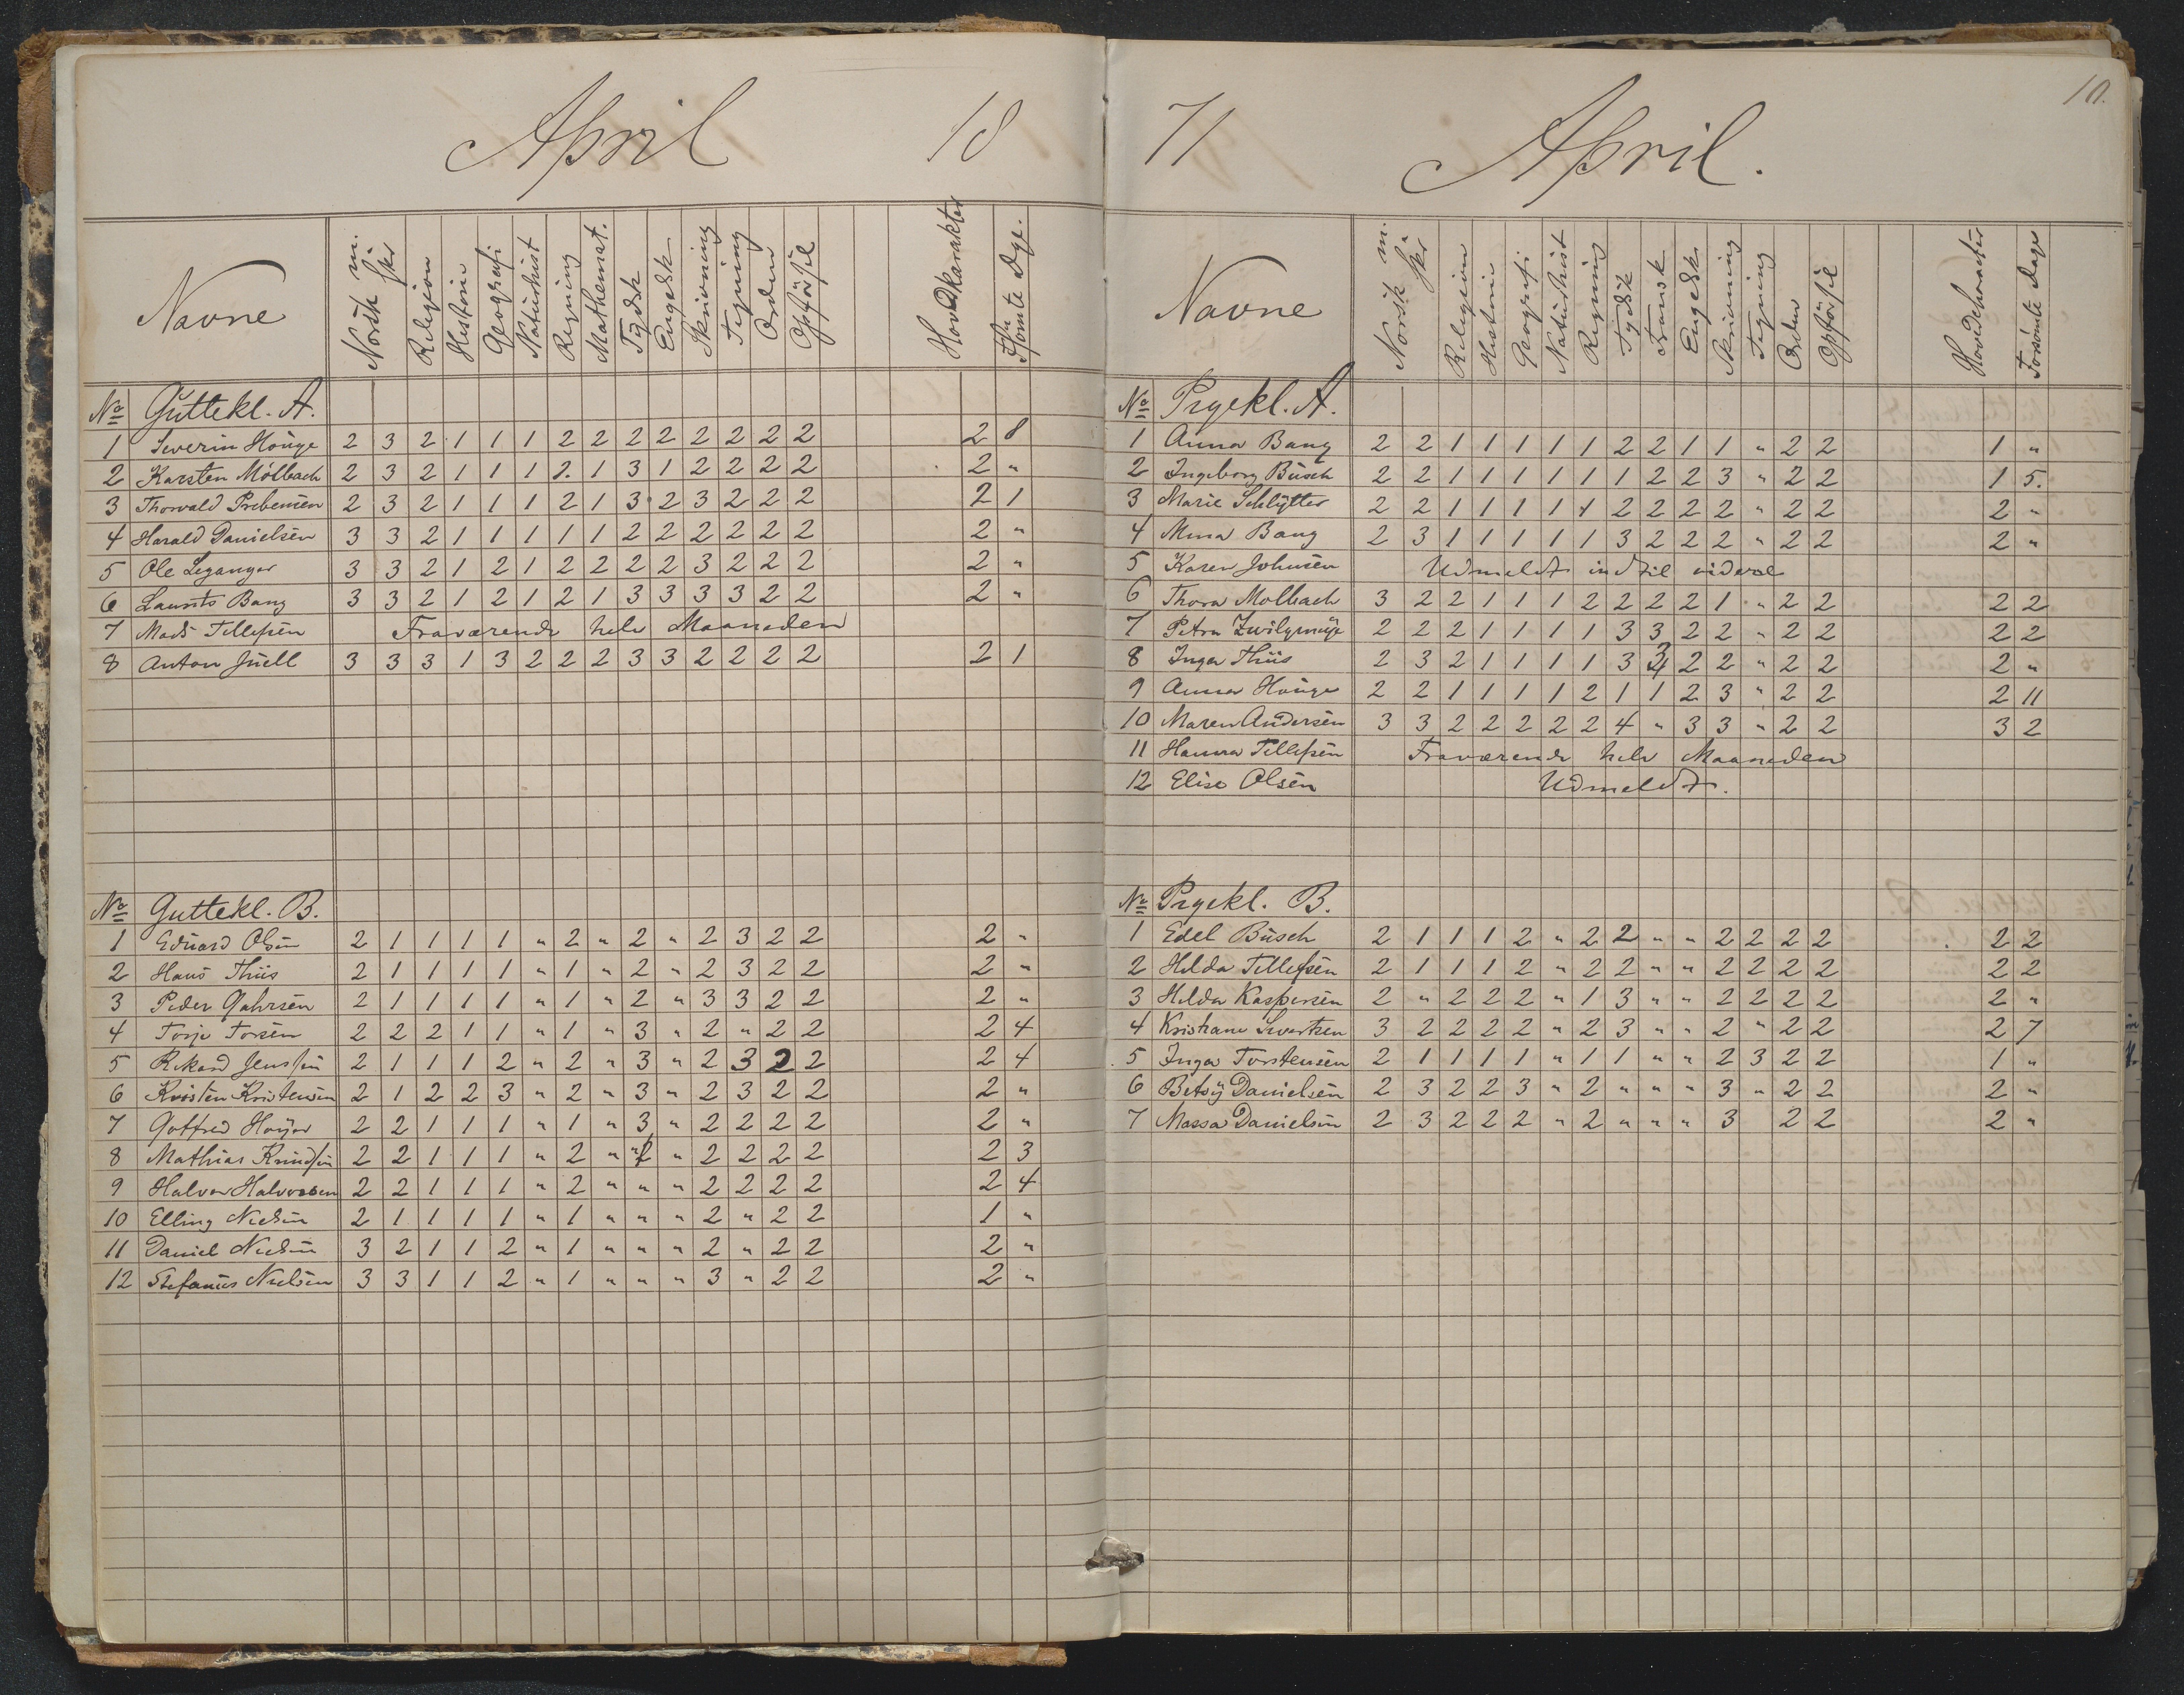 April 18
Navne Norsk m. skr Religion Historie Geografi Naturhist Regning Mathemat. Tydsk Engelsk Skrivning Tegning Orden Opförsel Hovedkarakter Dge.
No Guttekl. A.
1 Severin Houge 2 3 2 1 1 1 2 2 2 2 2 2 2 2 2 8
2 Karsten Mölbach 2 3 2 1 1 1 2. 1 3 1 2 2 2 2 2 "
3 Thorvald Prebensen 2 3 2 1 1 1 2 1 3 2 3 2 2 2 2 1
4 Harald Danielsen 3 3 2 1 1 1 1 1 2 2 2 2 2 2 2 "
5 Ole Leganger 3 3 2 1 2 1 2 2 2 2 3 2 2 2 2 "
6 Laurits Bang 3 3 2 1 2 1 2 1 3 3 3 3 2 2 2 "
7 Mads Tellefsen Fraværende hele Maaneden
8 Anton Juell 3 3 3 1 3 2 2 2 3 3 2 2 2 2 2 1
No Guttekl. B.
1 Eduard Olsen 2 1 1 1 1 " 2 " 2 " 2 3 2 2 2 "
2 Hans Thiis 2 1 1 1 1 " 1 " 2 " 2 3 2 2 2 "
3 Peder Gahrsen 2 1 1 1 1 " 1 " 2 " 3 3 2 2 2 "
4 Torje Torsen 2 2 2 1 1 " 1 " 3 " 2 " 2 2 2 4
5 Rikard Jensen 2 1 1 1 2 " 2 " 3 " 2 3 2 2 2 4
6 Kristen Kristensen 2 1 2 2 3 " 2 " 3 " 2 3 2 2 2 "
7 Gotfred Hoyer 2 2 1 1 1 " 1 " 3 " 2 2 2 2 2 "
8 Mathias Knudsen 2 2 1 1 1 " 2 " " " 2 2 2 2 2 3
9 Halvor Halvorsen 2 2 1 1 1 " 2 " " " 2 2 2 2 2 4
10 Elling Nielsen 2 1 1 1 1 " 1 " " " 2 " 2 2 1 "
11 Daniel Nielsen 3 2 1 1 2 " 1 " " " 2 " 2 2 2 "
12 Stefanus Nielsen 3 3 1 1 2 " 1 " " " 3 " 2 2 2 "
71 April. 10.
Navne Norsk m. skr Religion Historie Geografi Naturhist Regning Tydsk Fransk Engelsk Skrivning Tegning Orden Opförsel Hovedcharacter Forsömte Dage
No Pigekl. A.
1 Anna Bang 2 2 1 1 1 1 1 2 2 1 1 " 2 2 1 "
2 Ingeborg Busch 2 2 1 1 1 1 1 1 2 2 3 " 2 2 1 5.
3 Marie Schlytter 2 2 1 1 1 1 1 2 2 2 2 " 2 2 2 "
4 Mina Bang 2 3 1 1 1 1 1 3 2 2 2 " 2 2 2 "
5 Karen Johnsen Udmeldt indtil videre
6 Thora Molbach 3 2 2 1 1 1 2 2 2 2 1 " 2 2 2 2
7 Petra Zwilgmeije 2 2 2 1 1 1 1 3 3 2 2 " 2 2 2 2
8 Inga Thiis 2 3 2 1 1 1 1 3 3 2 2 " 2 2 2 "
9 Anna Houge 2 2 1 1 1 1 2 1 1 2 3 " 2 2 2 11
10 Maren Andersen 3 3 2 2 2 2 2 4 " 3 3 " 2 2 3 2
11 Hanna Tellefsen Fraværende hele Maaneden
12 Elise Olsen Udmeldt.
No Pigekl. B.
1 Edel Busch 2 1 1 1 2 " 2 2 " " 2 2 2 2 2 2
2 Hilda Tellefsen 2 1 1 1 2 " 2 2 " " 2 2 2 2 2 2
3 Hilda Kaspersen 2 " 2 2 2 " 1 3 " " 2 2 2 2 2 "
4 Kristiane Sivertsen 3 2 2 2 2 " 2 3 " " 2 " 2 2 2 7
5 Inga Torstensen 2 1 1 1 1 " 1 1 " " 2 3 2 2 1 "
6 Betsy Danielsen 2 3 2 2 3 " 2 " " " 3 " 2 2 2 "
7 Massa Danielsen 2 3 2 2 2 " 2 " " " 3 2 2 2 "